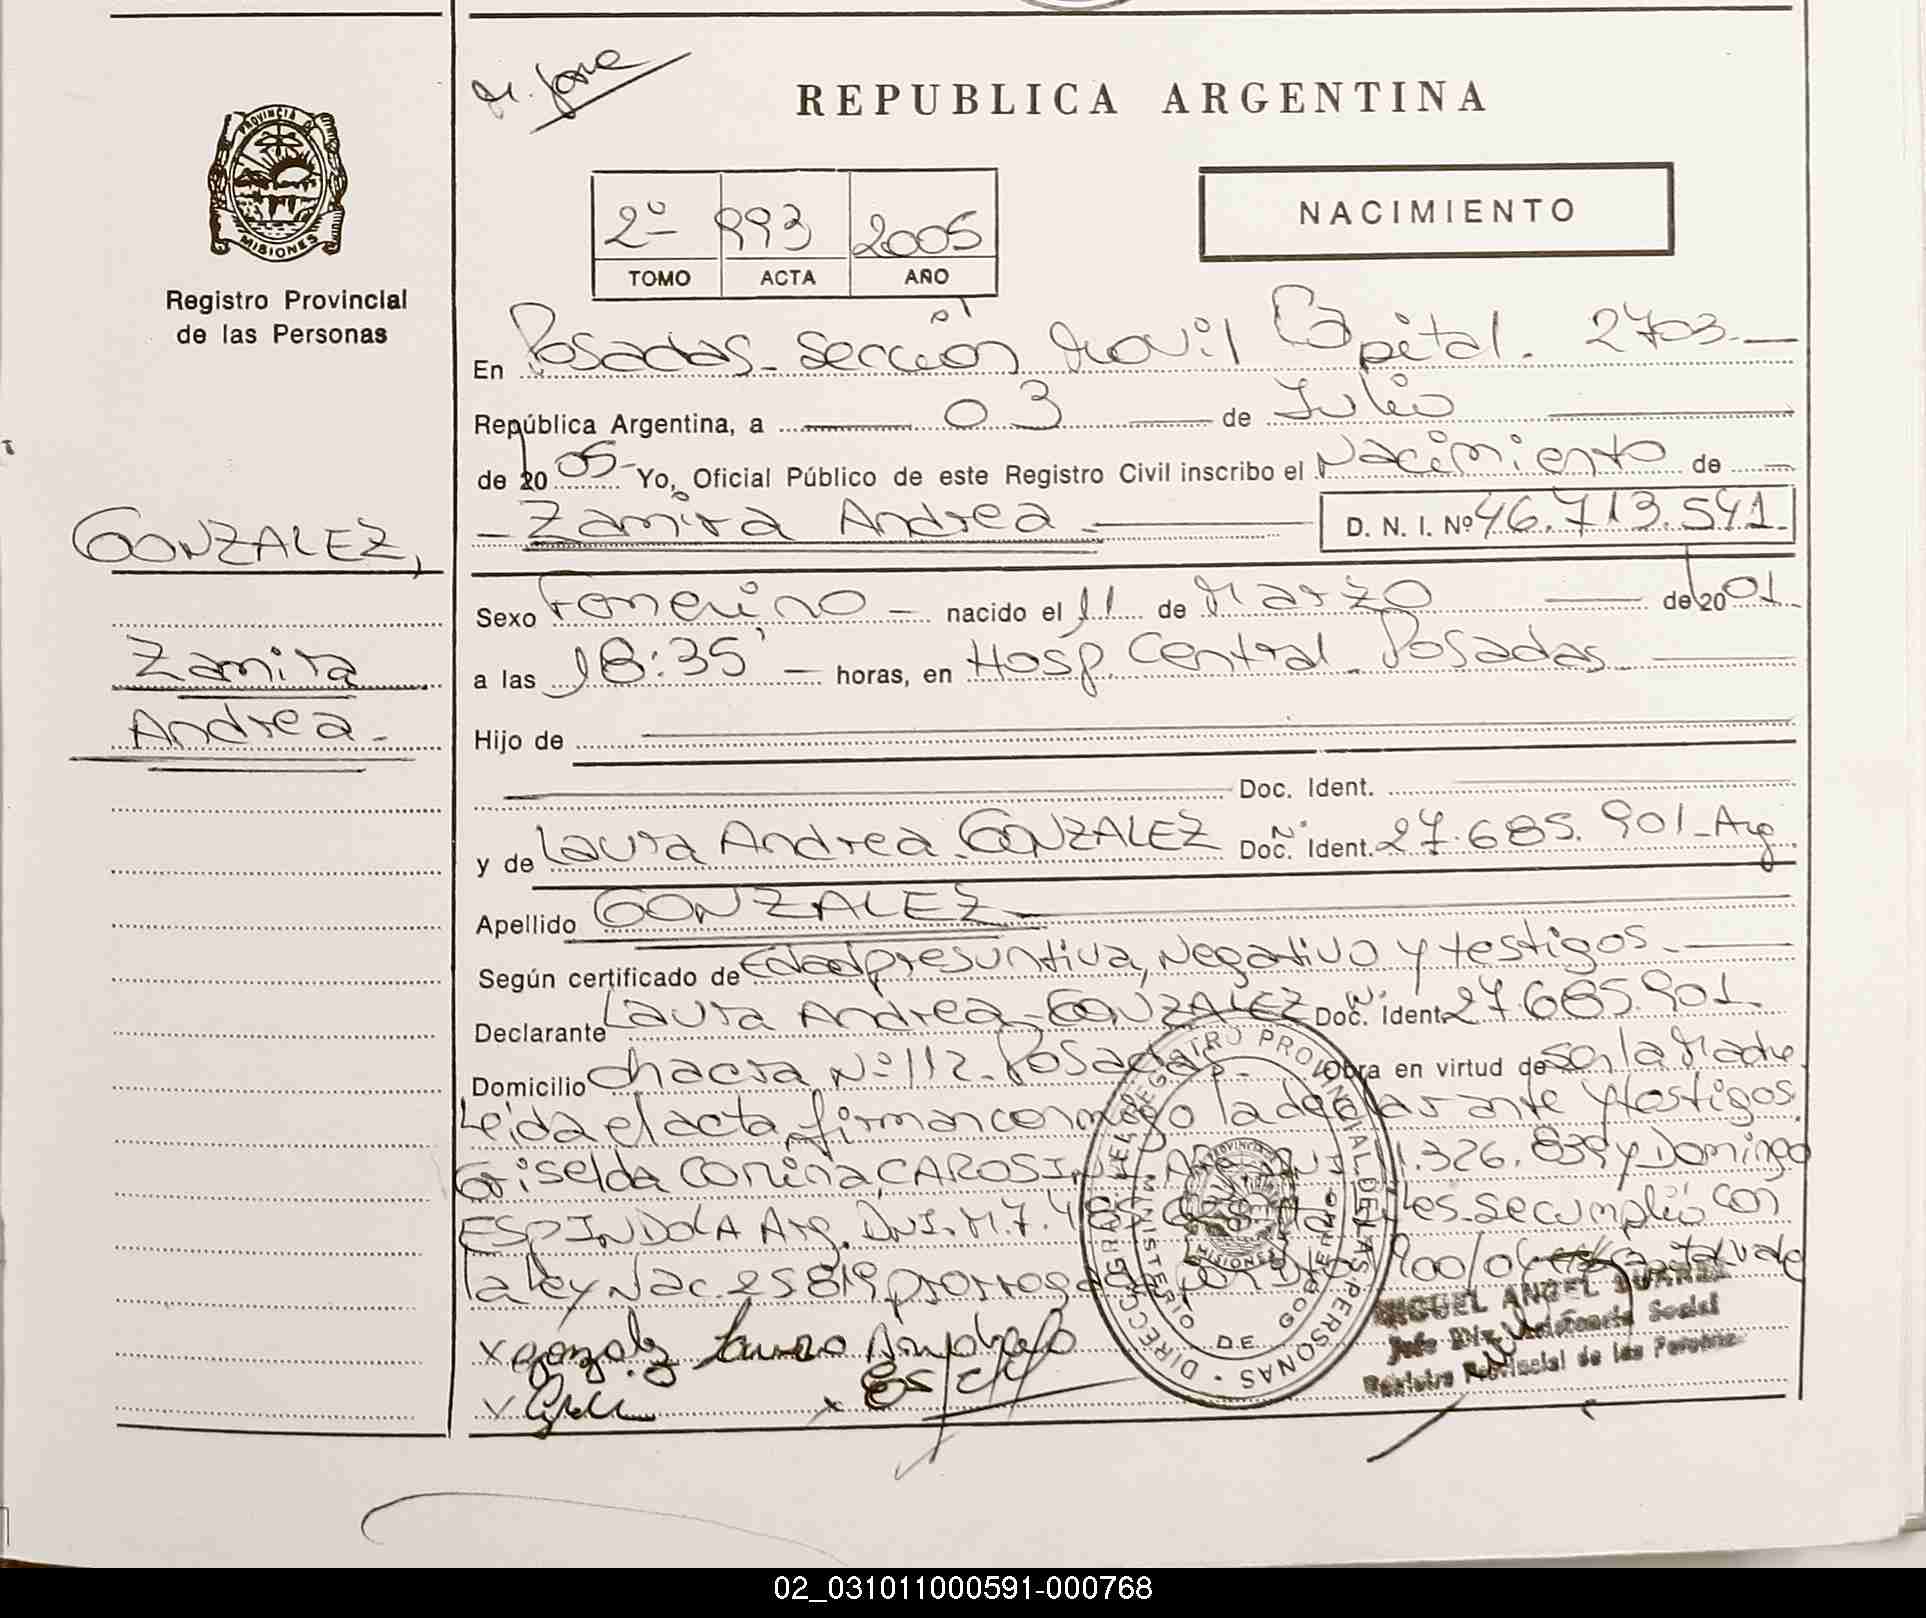 REPUBLICA ARGENTINA
PROVINCIA DE
MISIONES
Registro Provincial
de las Personas
2º 993 2005
TOMO ACTA AÑO
NACIMIENTO
En Posadas - sección Movil Capital. 2703.-
República Argentina, a 03 de Julio
de 2005- Yo, Oficial Público de este Registro Civil inscribo el Nacimiento de
- Zamira Andrea - D. N. I. Nº 46.713.541-
GONZALEZ,
Zamira
Andrea.-
Sexo Femenino - nacido el 11 de Marzo de 2001.
a las 18:35' - horas, en Hosp. Central - Posadas
Hijo de
Doc. Ident.
y de Laura Andrea GONZALEZ Doc. Ident. Nº 27.685.901-Arg.
Apellido GONZALEZ
Según certificado de Edad presuntiva, Negativo y testigos.-
Declarante Laura Andrea - GONZALEZ Doc. Ident. Nº 27.685.901.
Domicilio Chacra Nº 112 - Posadas. Obra en virtud de ser la Madre
Leida el acta, firman conmigo la declarante y testigos
Griselda Corina, CAROSINI, Arg. DNI 1.326.839 y Domingo
ESPINDOLA Arg. DNI. M. 7.48 les. se cumplió con
la ley Nac. 25819 prorrogada por Dto 900/04 vale
DIRECC. GRAL. DEL REGISTRO PROVINCIAL DE LAS PERSONAS
MINISTERIO DE GOBIERNO
PROVINCIA
MISIONES
MIGUEL ANGEL SUAREZ
Jefe Div. Asistencia Social
Registro Provincial de las Personas
02_031011000591-000768